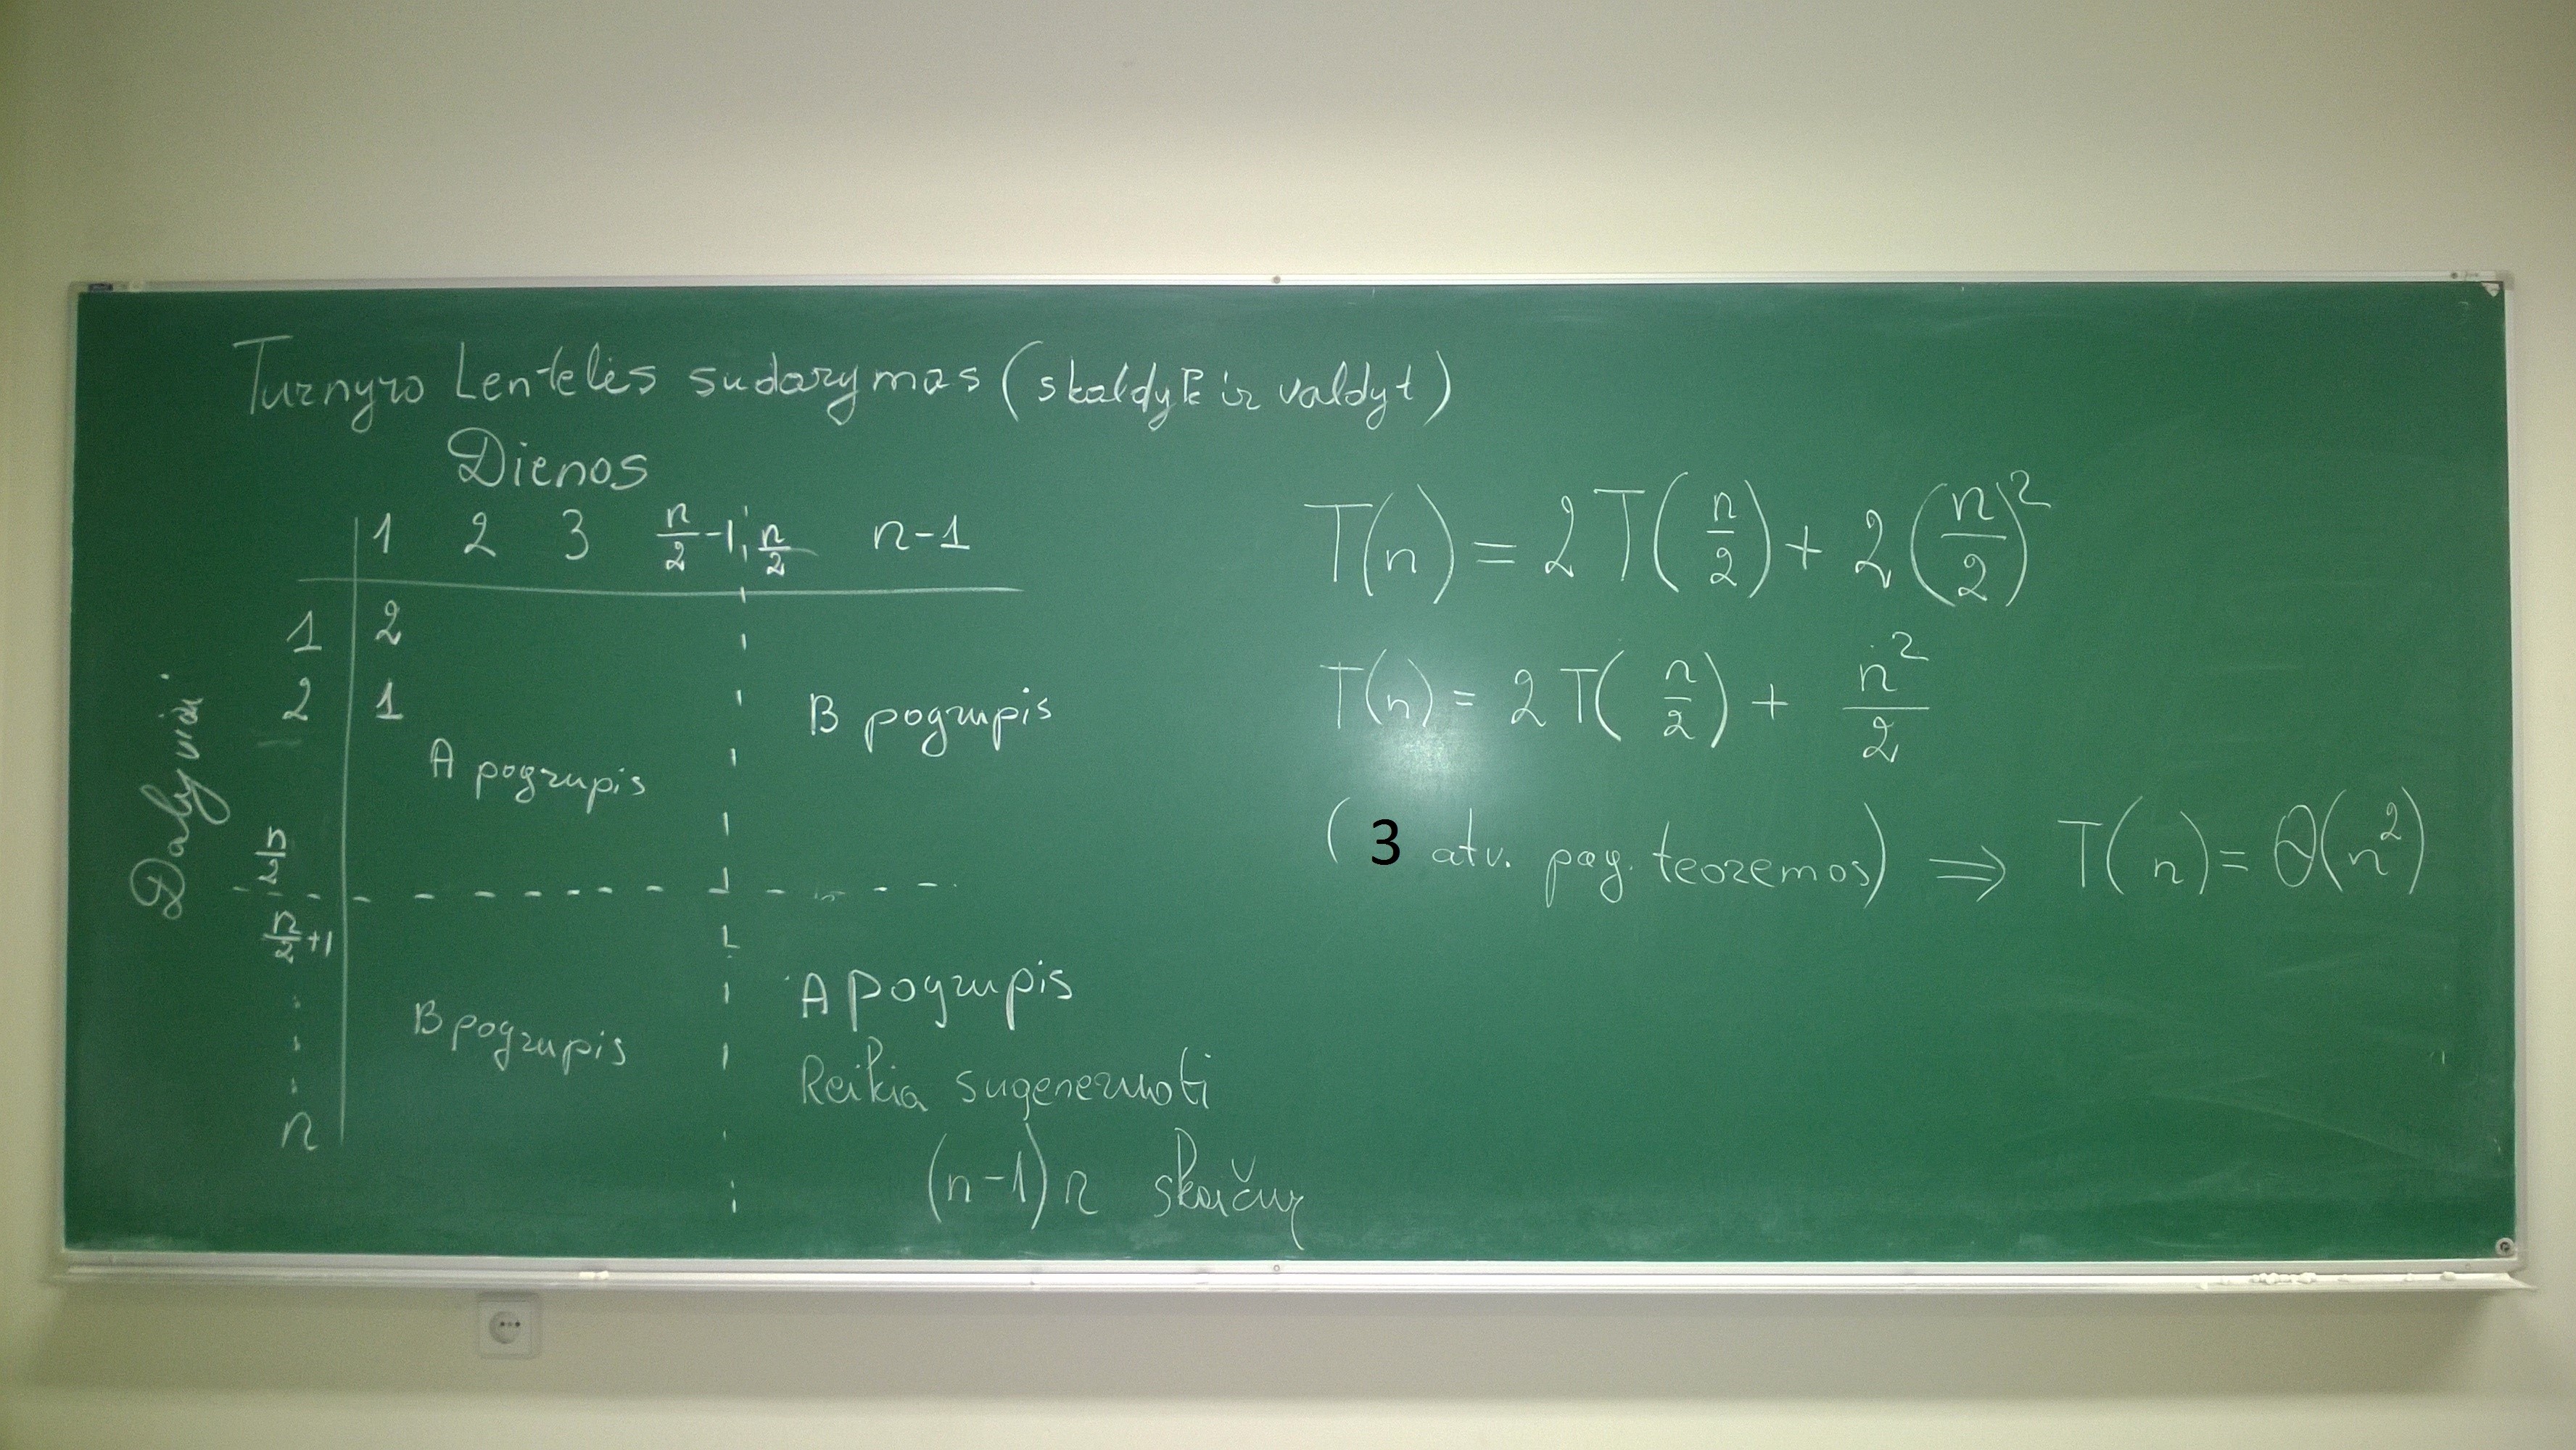 Turnyro Lentelės sudarymas (skaldyk ir valdyk)
Dienos
1 2 3 n/2-1 n/2 n-1
Dalyviai
1 2
2 1
A pogrupis
B pogrupis
n/2
n/2+1
B pogrupis
A pogrupis
n
Reikia sugeneruoti
(n-1)n skaičių
T(n) = 2T(n/2) + 2(n/2)²
T(n) = 2T(n/2) + n²/2
(3 atv. pag. teoremos) ⇒ T(n) = Θ(n²)